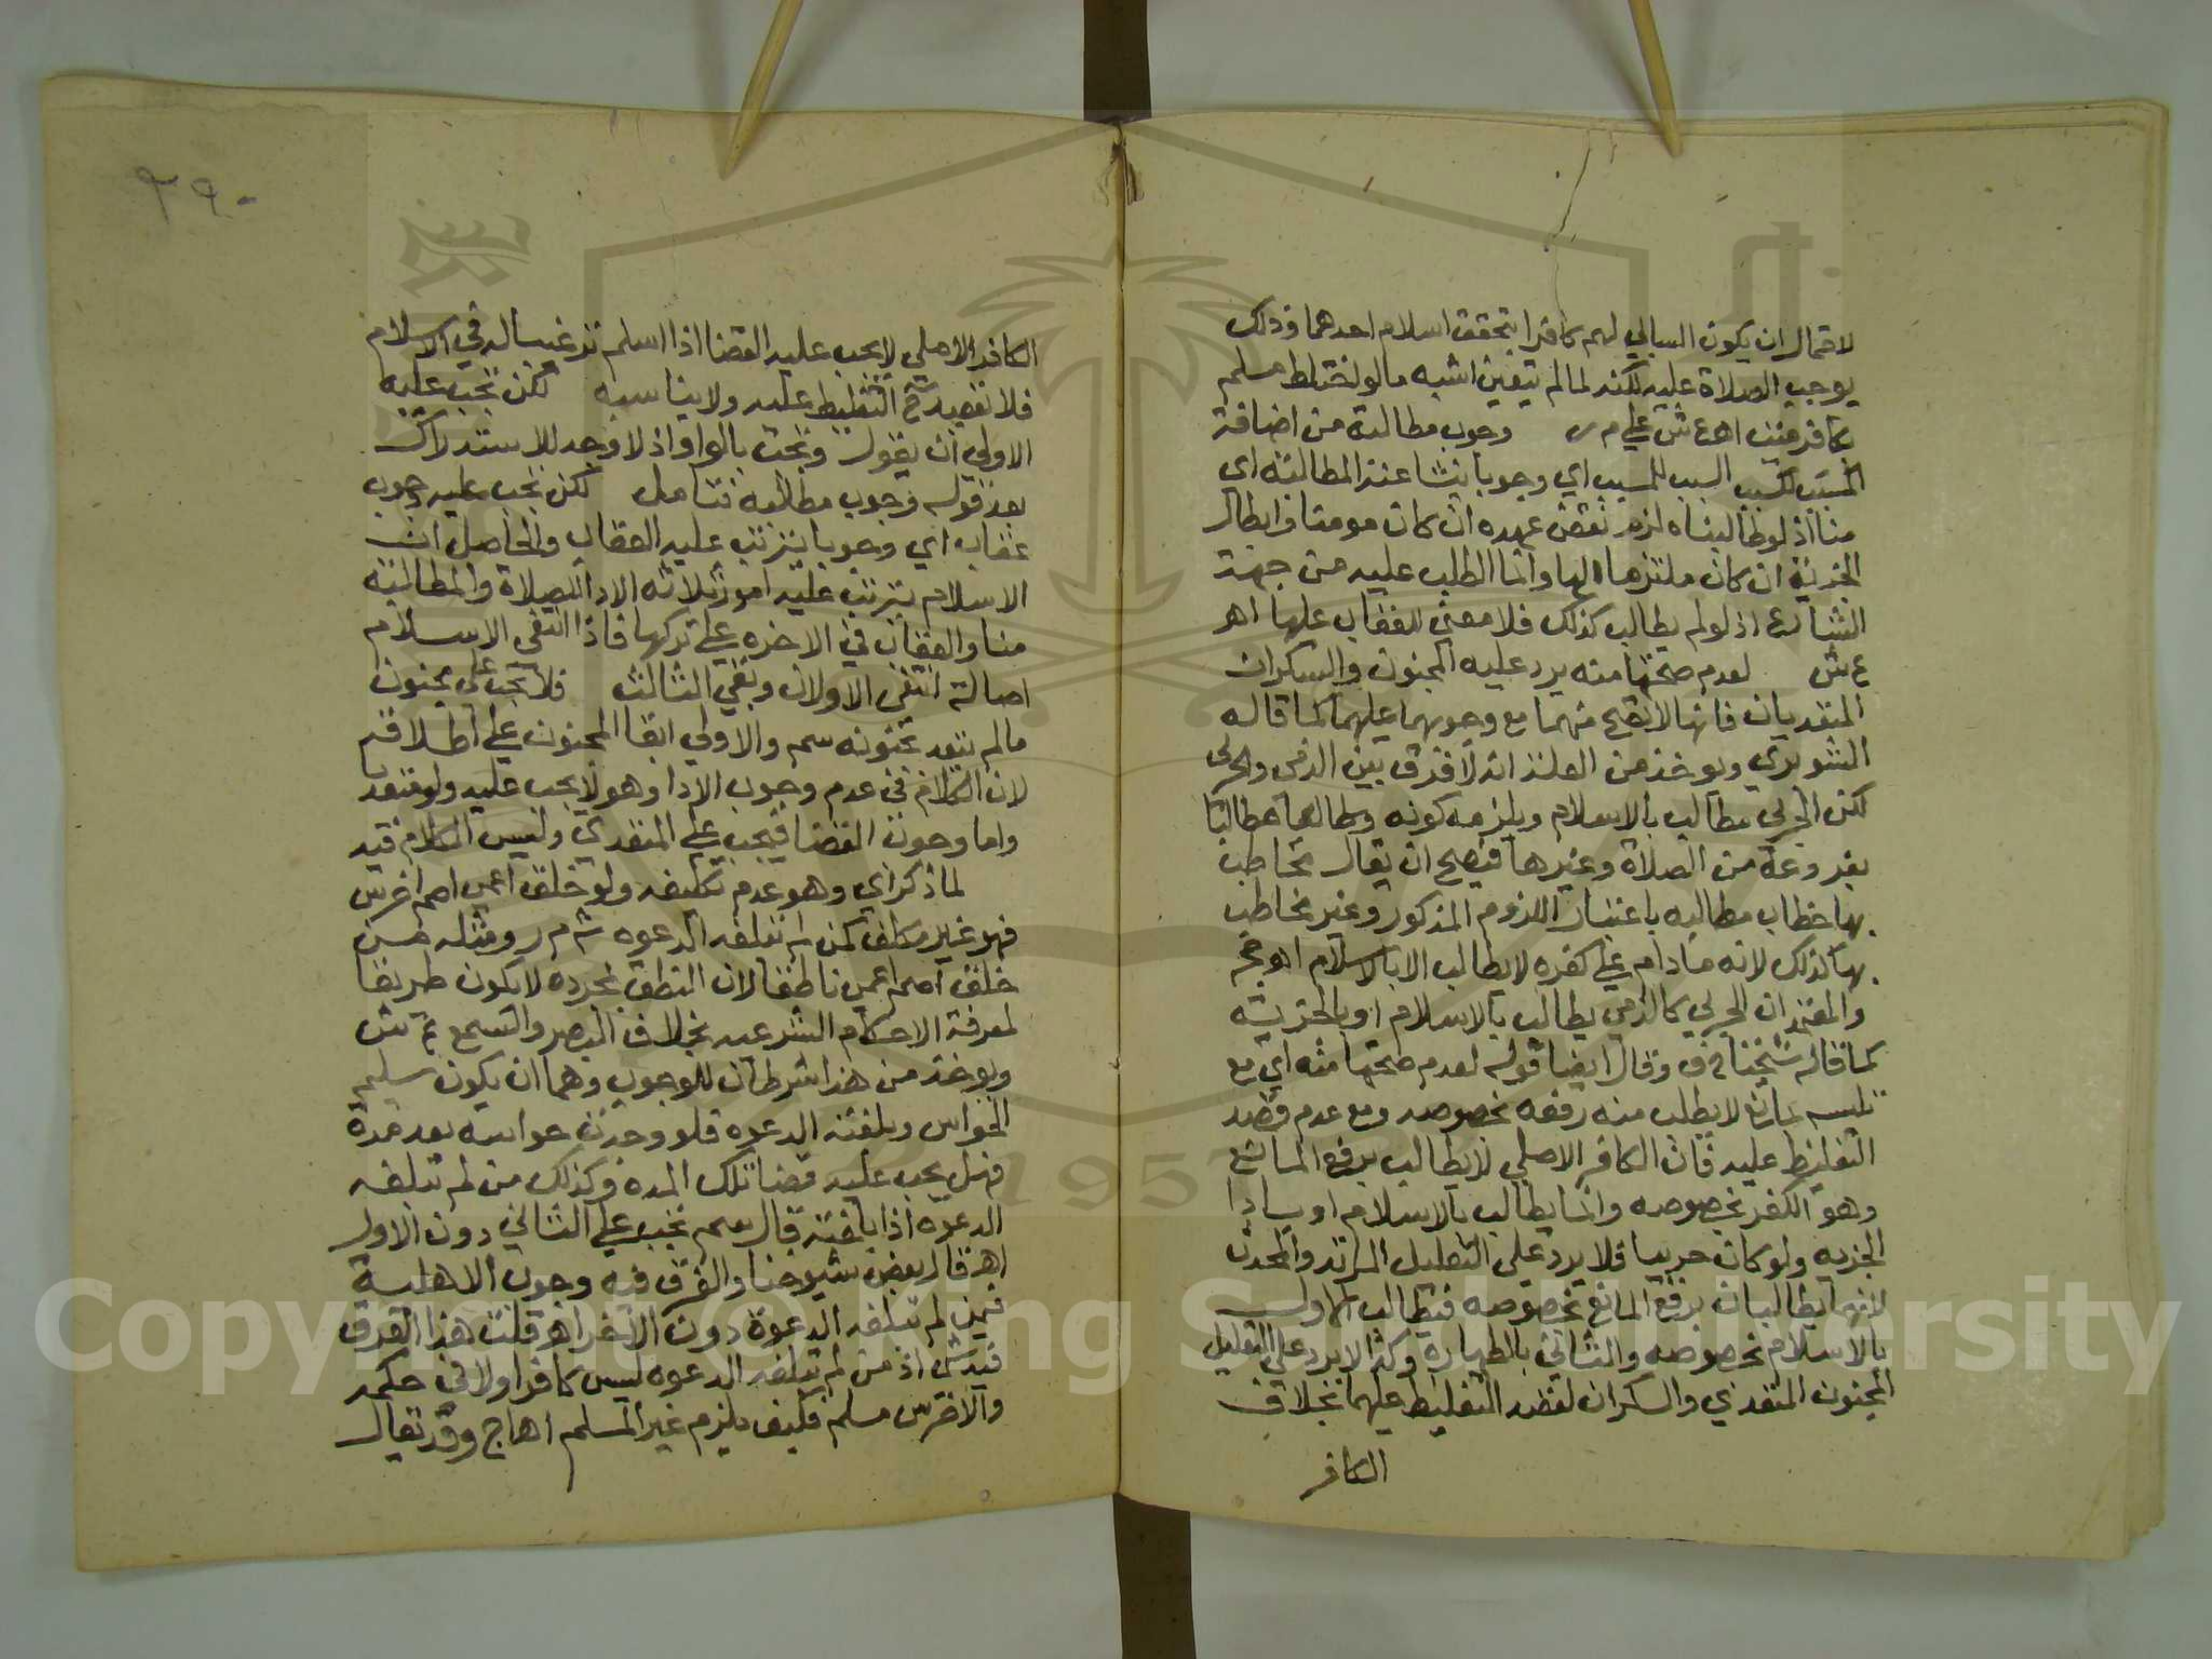 لاحتمال ان يكون السابي لهم كافرا بتحقق اسلام احدهما وذلك
يوجب الصلاة عليه لكنه لما لم يتعين اشبه ما لو اختلط مسلم
بكافر ميت اه ع ش علي م ر وجوب مطالبة من اضافة
السبب للمسبب اي وجوبا ينشا عنه المطالبة اي
منا اذ لو طالبناه لزم نقض عهده ان كان مومنا وابطال
الجزية ان كان ملتزما لها وانما الطلب عليه من جهة
الشارع اذ لو لم يطالب كذلك فلا معني للعقاب عليها اهر
ع ش لعدم صحتها منه يرد عليه المجنون والسكران
المتعديان فانها لا تصح منهما مع وجوبها عليهما كما قاله
الشوبري ويوخذ من العلة انه لا فرق بين الذمي والحربي
لكن الحربي مطالب بالاسلام ويلزمه كونه مطالبا
بفروعه من الصلاة وغيرها فيصح ان يقال مخاطب
بها خطاب مطالبه باعتبار اللزوم المذكور وغير مخاطب
بها كذلك لانه ما دام علي كفره لا يطالب الا بالاسلام اه
والمعتمد ان الحربي كالذمي يطالب بالاسلام او بالجزية
كما قاله شيخنا ح ف وقال ايضا قوله لعدم صحتها منه اي مع
تلبسه بمانع لا يطلب منه رفعه بخصوصه ومع عدم قصد
التغليظ عليه فان الكافر الاصلي لا يطالب برفع المانع
وهو الكفر بخصوصه وانما يطالب بالاسلام او باداء
الجزيه ولو كان حربيا فلا يرد علي التعليل المرتد والمحدث
لانهما يطالبان برفع المانع بخصوصه فيطالب الاول
بالاسلام بخصوصه والثاني بالطهارة وكذا لا يرد علي التعليل
المجنون المتعدي والسكران لقصد التغليظ عليهما بخلاف
الكافر
٢٩٠
الكافر الاصلي لا يجب عليه القضا اذا اسلم ترغيبا له في الاسلام
فلا نقصد ح التغليظ عليه ولا يناسبه لكن تجب عليه
الاولي ان يقول وتجب بالواو اذ لا وجه للاستدراك
بعد قوله وجوب مطالبه فتامل لكن تجب عليه وجوب
عقاب اي وجوبا يترتب عليه العقاب والحاصل ان
الاسلام يترتب عليه امور ثلاثه الادا للصلاة والمطالبة
منا والعقاب في الاخره علي تركها فاذا انتفي الاسلام
اصالة انتفي الاولان وبقي الثالث فلا تجب علي مجنون
ما لم يتعد بجنونه سم والاولي ابقا المجنون علي اطلاقه
لان الكلام في عدم وجوب الادا وهو لا يجب عليه ولو متعد
واما وجوب القضا فيجب علي المتعدي وليس الكلام فيه
لما ذكر اي وهو عدم تكليفه ولو خلق اعمي اصم اخرس
فهو غير مكلف كمن لم تبلغه الدعوه ش م ر ومثله من
خلق اصم اعمي ناطقا لان النطق بمجرده لا يكون طريقا
لمعرفة الاحكام الشرعيه بخلاف البصر والسمع ع ش
ويوخذ من هذا شرطان للوجوب وهما ان يكون سليم
الحواس وبلغته الدعوه فلو وجدت حواسه بعد مدة
فهل يجب عليه قضا تلك المده وكذلك من لم تبلغه
الدعوه اذا بلغته قال سم تجب علي الثاني دون الاول
اهر قال بعض شيوخنا والفرق فيه وجود الاهلية
فيمن لم تبلغه الدعوة دون الاخر اهر قلت هذا الفرق
فيه شي اذ من لم تبلغه الدعوه ليس كافرا ولا في حكمه
والاخرس مسلم فكيف يلزم غير المسلم اه اج وقد يقال
Copyright © King Saud University
1957